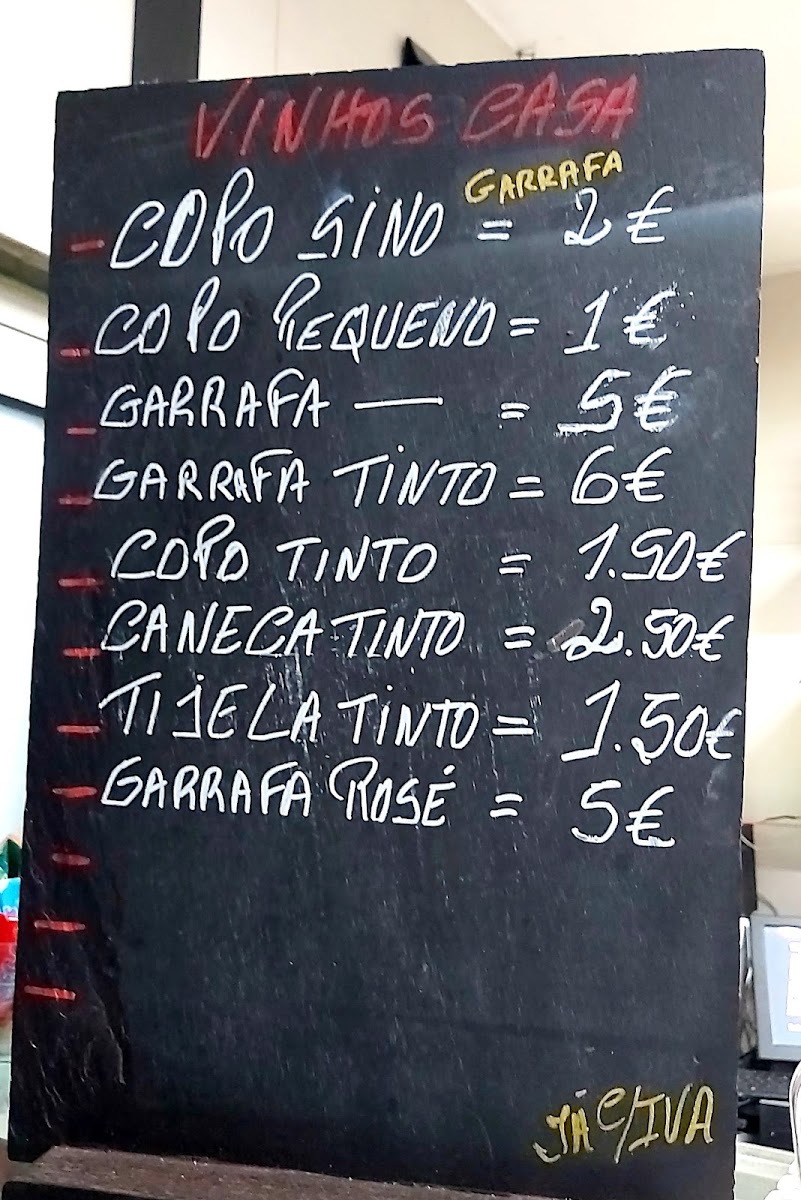 VINHOS CASA
GARRAFA
- COPO SINO = 2€
- COPO PEQUENO = 1€
- GARRAFA — = 5€
- GARRAFA TINTO = 6€
- COPO TINTO = 1.50€
- CANECA TINTO = 2.50€
- TIJELA TINTO = 1.50€
- GARRAFA ROSÉ = 5€
JÁ C/IVA